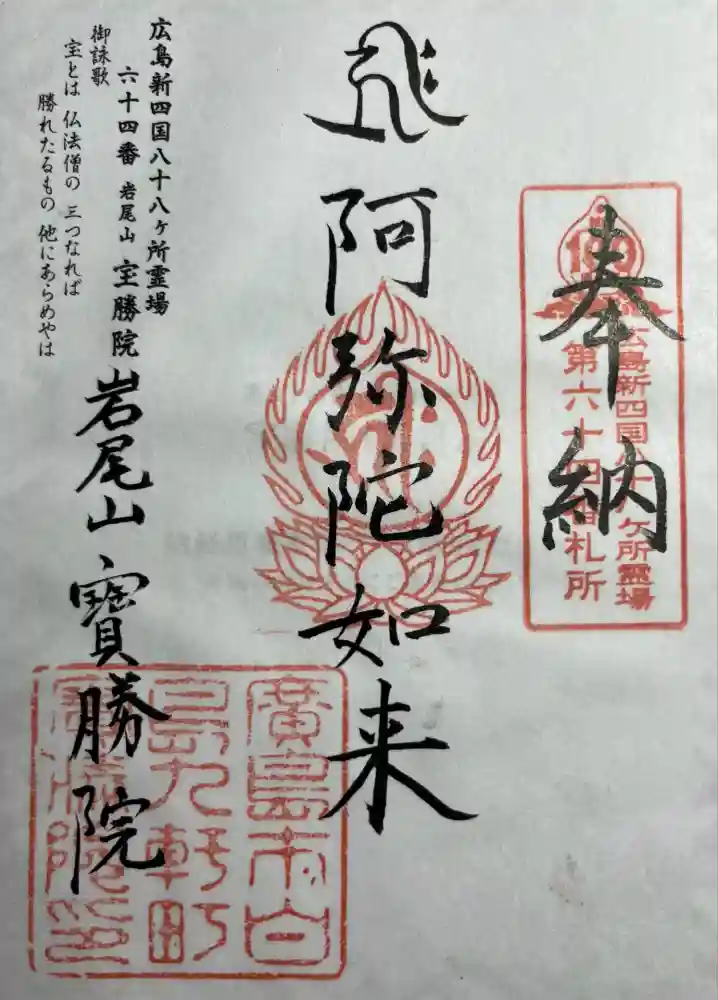 奉納
広島新四国八十八ヶ所霊場
第六十四番札所
阿弥陀如来
広島新四国八十八ヶ所霊場
六十四番 岩尾山 宝勝院
御詠歌
宝とは 仏法僧の 三つなれば
勝れたるもの 他にあらめやは
岩尾山 寶勝院
廣島市白
島九軒町
寶勝院印